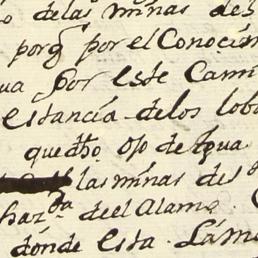 o de las minas de S
porq̃ por el Conocim
ua por este Cami
estancia de los lobo
que dho ojo de Agua
las minas de S
haz.da de el Alamo.
donde esta. La m